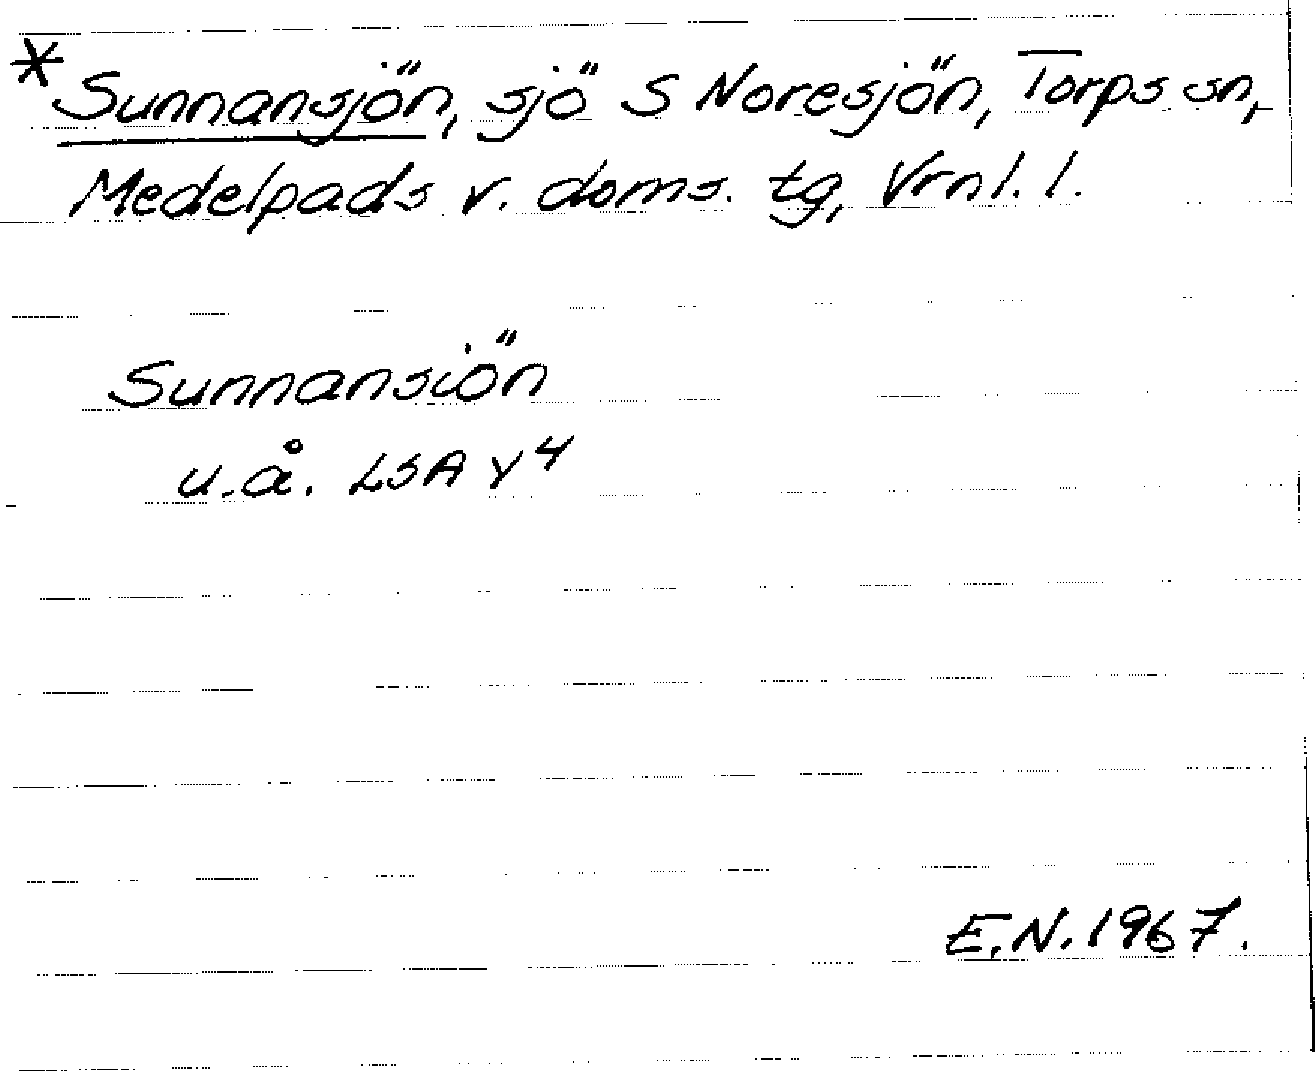 *Sunnansjön, sjö S Noresjön, Torps sn,
Medelpads v. doms. tg, Vrnl. l.
Sunnansiön
u.å. LSA Y4
E.N. 1967.